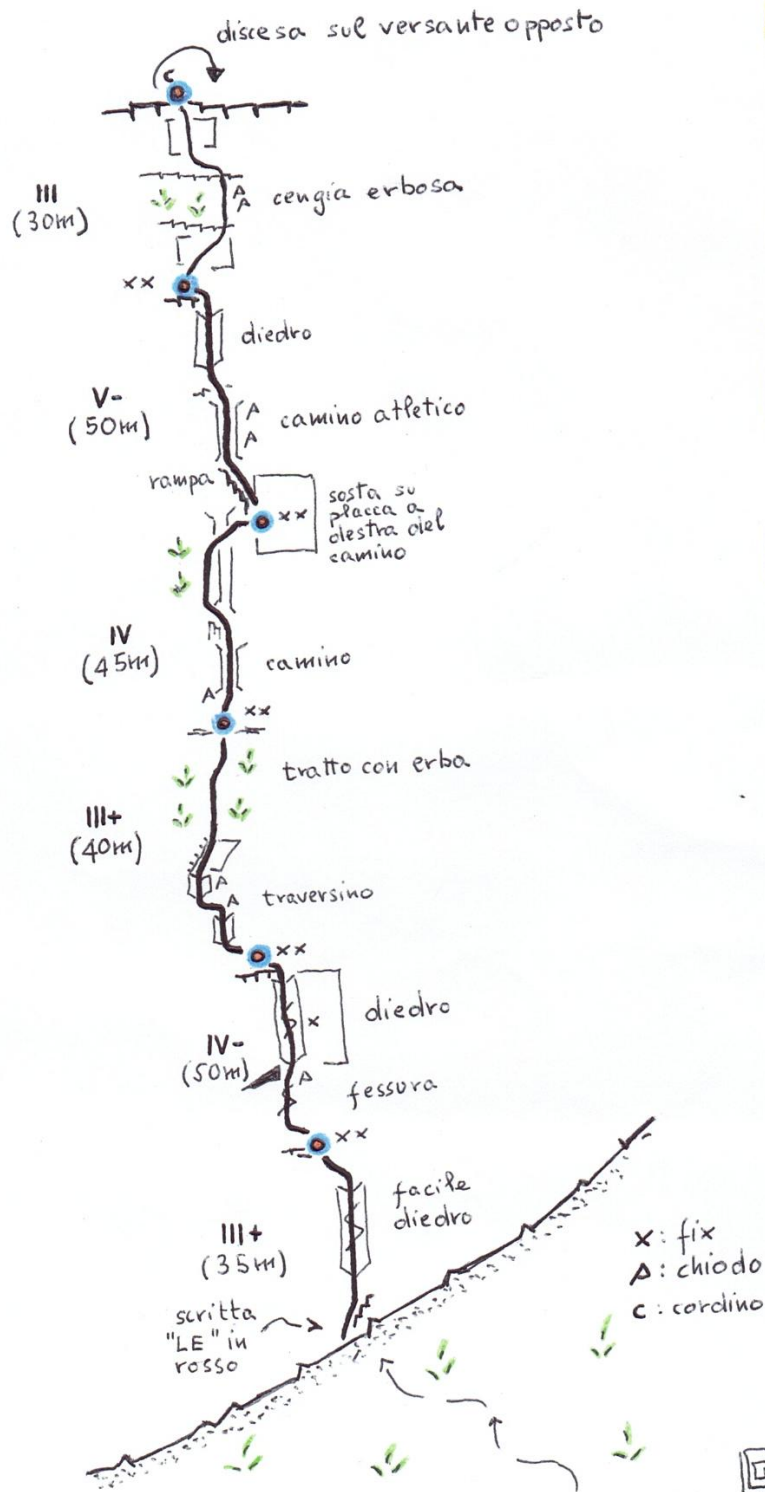 discesa sul versante opposto
c
III
(30m)
A
A
cengia erbosa
xx
diedro
V-
(50m)
A
A
camino atletico
rampa
xx
sosta su
placca a
destra del
camino
IV
(45m)
camino
A
xx
tratto con erba
III+
(40m)
A
A
traversino
xx
diedro
x
IV-
(50m)
A
fessura
xx
facile
diedro
III+
(35m)
x: fix
A: chiodo
c: cordino
scritta
"LE" in
rosso